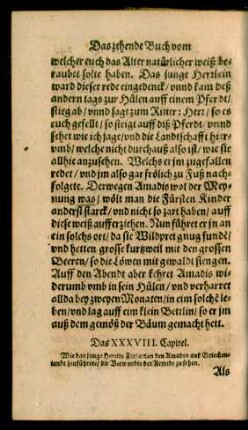 Das zehende Buch vom
welcher euch das Alter natürlicher weiß be-
raubet solte haben. Das junge Herrlein
ward dieser rede eingedenck/ vnnd kam deß
andern tags zur Hülen auff einem Pferdt/
stieg ab/ vnnd sagt zum Ritter: Herr/ so es
euch gefellt/ so steigt auff diß Pferdt/ vnnd
sehet wie ich jage/ vnd die Landtschafft hier-
vmb/ welche nicht durchauß also ist/ wie sie
allhie anzusehen. Welchs er jm zugefallen
redet/ vnd jm also gar frölich zu Fuß nach-
folgete. Derwegen Amadis wol der Mey-
nung was/ wölt man die Fürsten Kinder
anderst starck/ vnd nicht so zart haben/ auff
diese weiß aufferziehen. Nun führet er jn an
ein solchs ort/ da sie Wildpret gnug fundē/
vnd hetten grosse kurtzweil mit den grossen
Beeren/ so die Löwen mit gewaldt fiengen.
Auff den Abendt aber kehret Amadis wi-
derumb vmb in sein Hülen/ vnd verharret
allda bey zweyen Monaten/ in eim solchē le-
ben/ vnd lag auff ein klein Bettlin/ so er jm
auß dem gemöß der Bäum gemacht hett.
Das XXXVIII. Capitel.
Wie das junge Herrlin den Amadis auß Griechen-
landt hinführete/ die Verwandte der Armida zu sehen.
Als